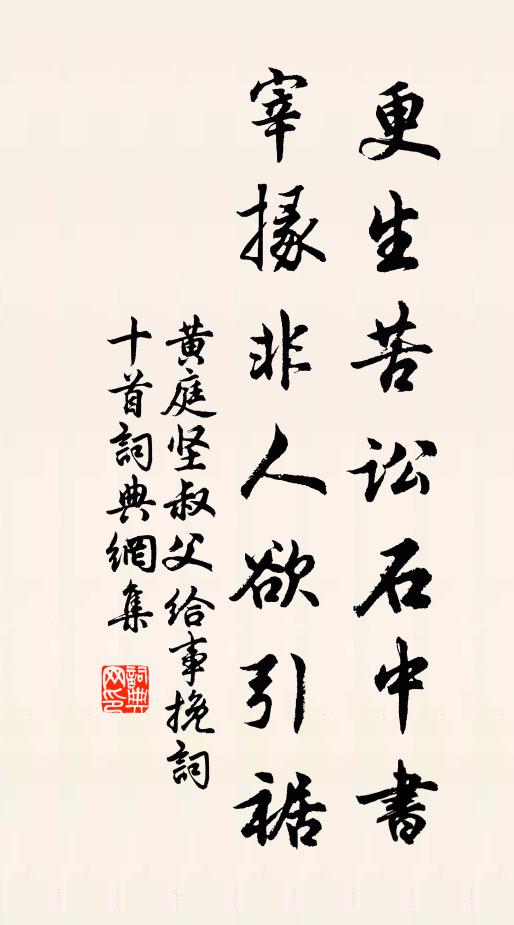 更生苦讼石中書
宰掾非人欲引裾
黄庭坚叔父给事挽詞
十首詞典網集
詞典网印